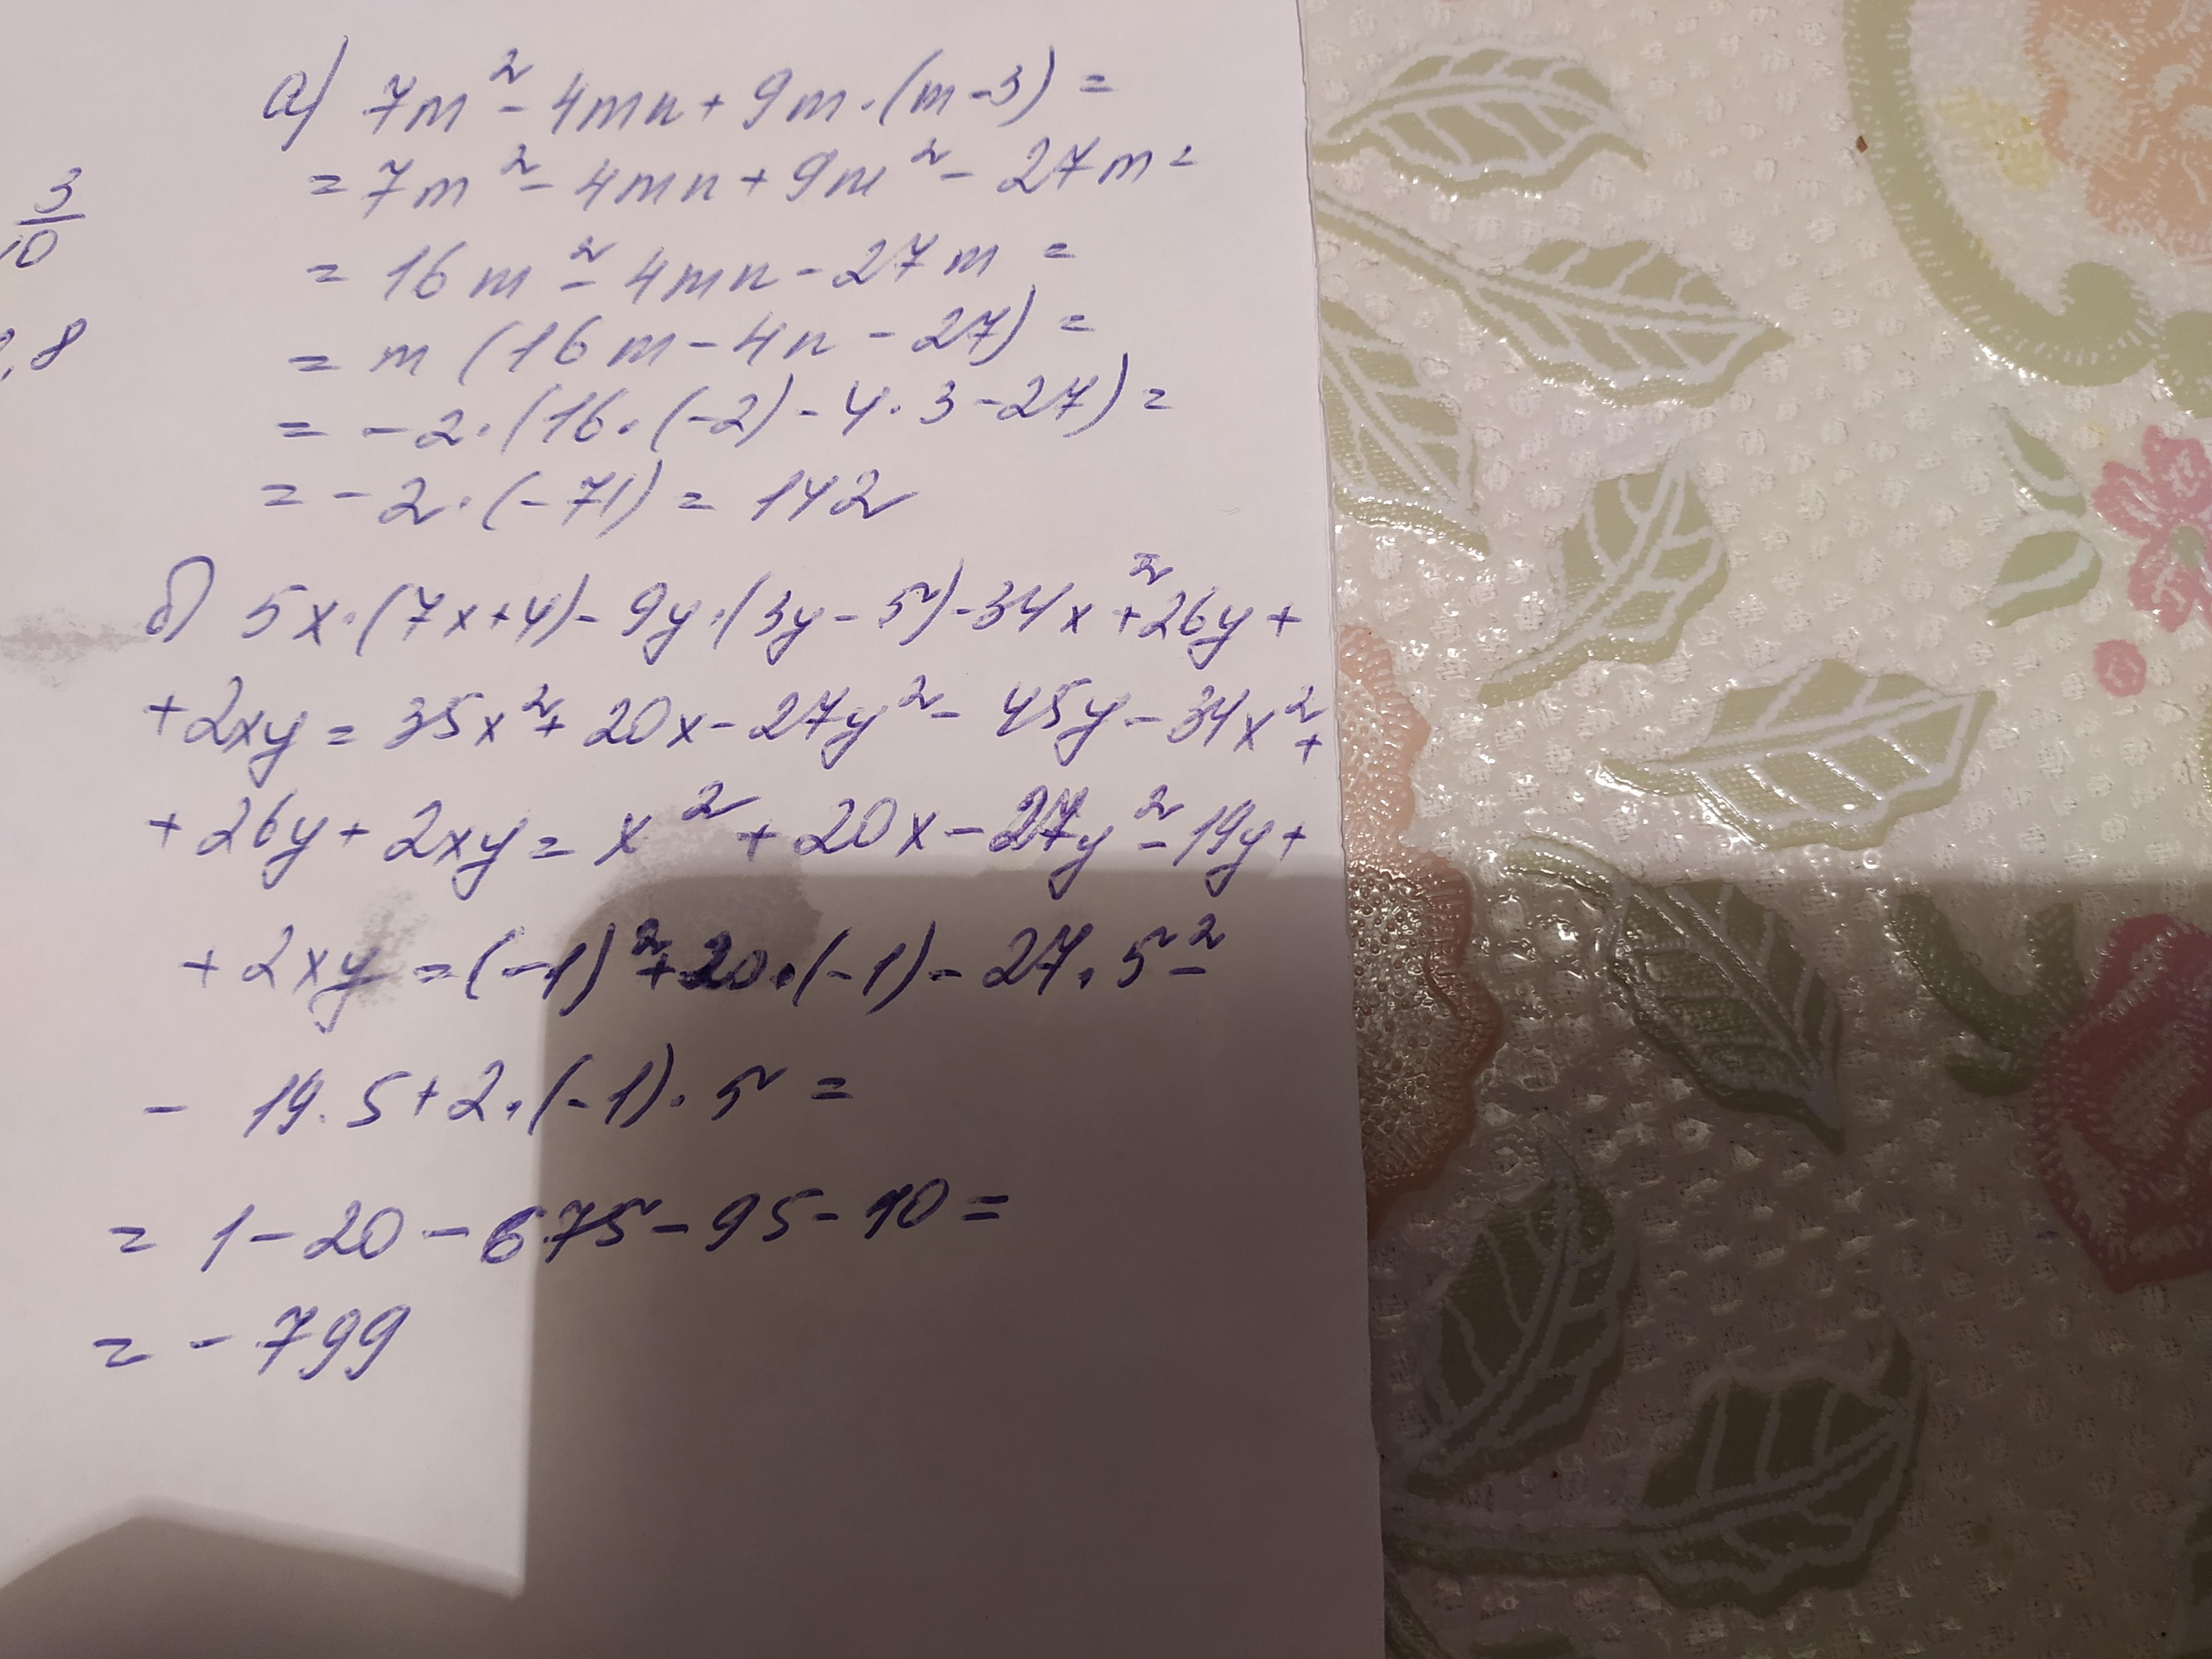 3/10
,8
а) 7m² - 4mn + 9m · (m - 3) =
= 7m² - 4mn + 9m² - 27m =
= 16m² - 4mn - 27m =
= m (16m - 4n - 27) =
= -2 · (16 · (-2) - 4 · 3 - 27) =
= -2 · (-71) = 142
б) 5x · (7x + 4) - 9y · (3y - 5) - 34x² + 26y +
+ 2xy = 35x² + 20x - 27y² - 45y - 34x² +
+ 26y + 2xy = x² + 20x - 27y² - 19y +
+ 2xy = (-1)² + 20 · (-1) - 27 · 5² -
- 19 · 5 + 2 · (-1) · 5 =
= 1 - 20 - 675 - 95 - 10 =
= - 799